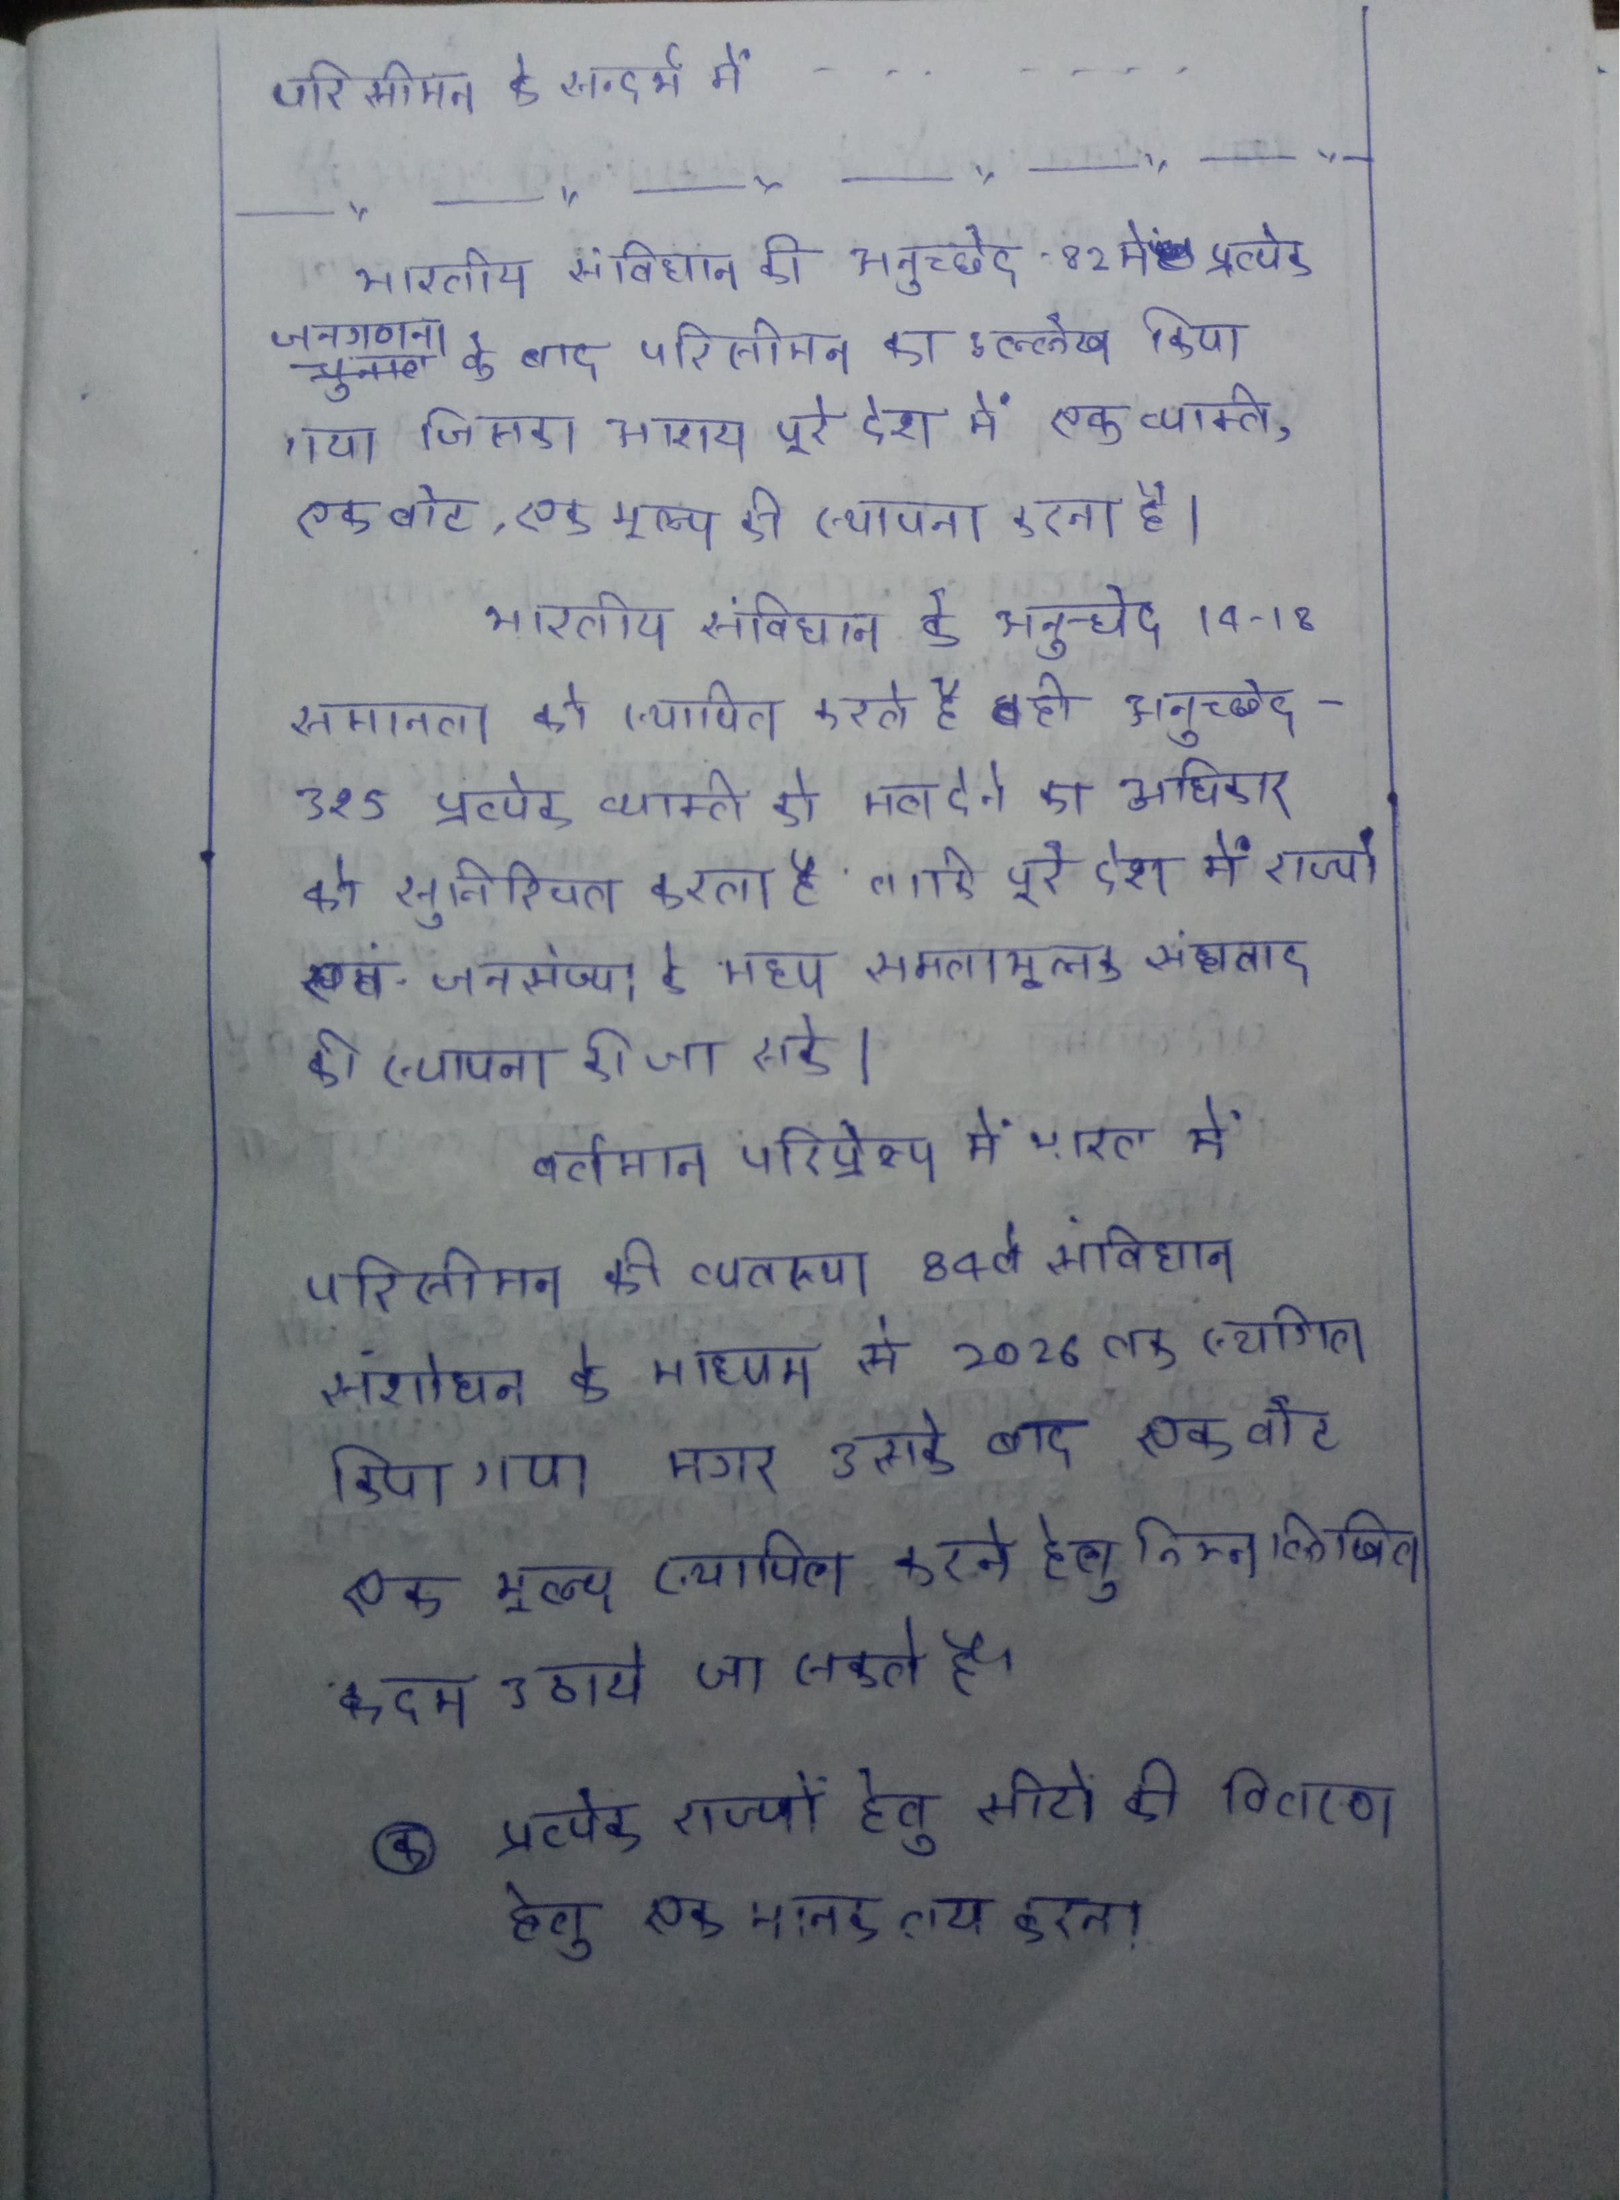 परिसीमन के सन्दर्भ में - - - - - - - -
भारतीय संविधान की अनुच्छेद - 82 में प्रत्येक
जनगणना के बाद परिसीमन का उल्लेख किया
गया जिसका आशय पूरे देश में एक व्यक्ति,
एक वोट, एक मूल्य की स्थापना करना है।
भारतीय संविधान के अनुच्छेद 14-18
समानता को स्थापित करते है वही अनुच्छेद -
325 प्रत्येक व्यक्ति को मत देने का अधिकार
को सुनिश्चित करता है ताकि पूरे देश में राज्यों
एवं जनसंख्या के मध्य समतामूलक संघवाद
की स्थापना की जा सके।
वर्तमान परिप्रेक्ष्य में भारत में
परिसीमन की व्यवस्था 84वे संविधान
संशोधन के माध्यम से 2026 तक स्थगित
किया गया मगर उसके बाद एक वोट
एक मूल्य स्थापित करने हेतु निम्नलिखित
कदम उठाये जा सकते है।
प्रत्येक राज्यों हेतु सीटों की वितरण
हेतु एक मानक तय करना